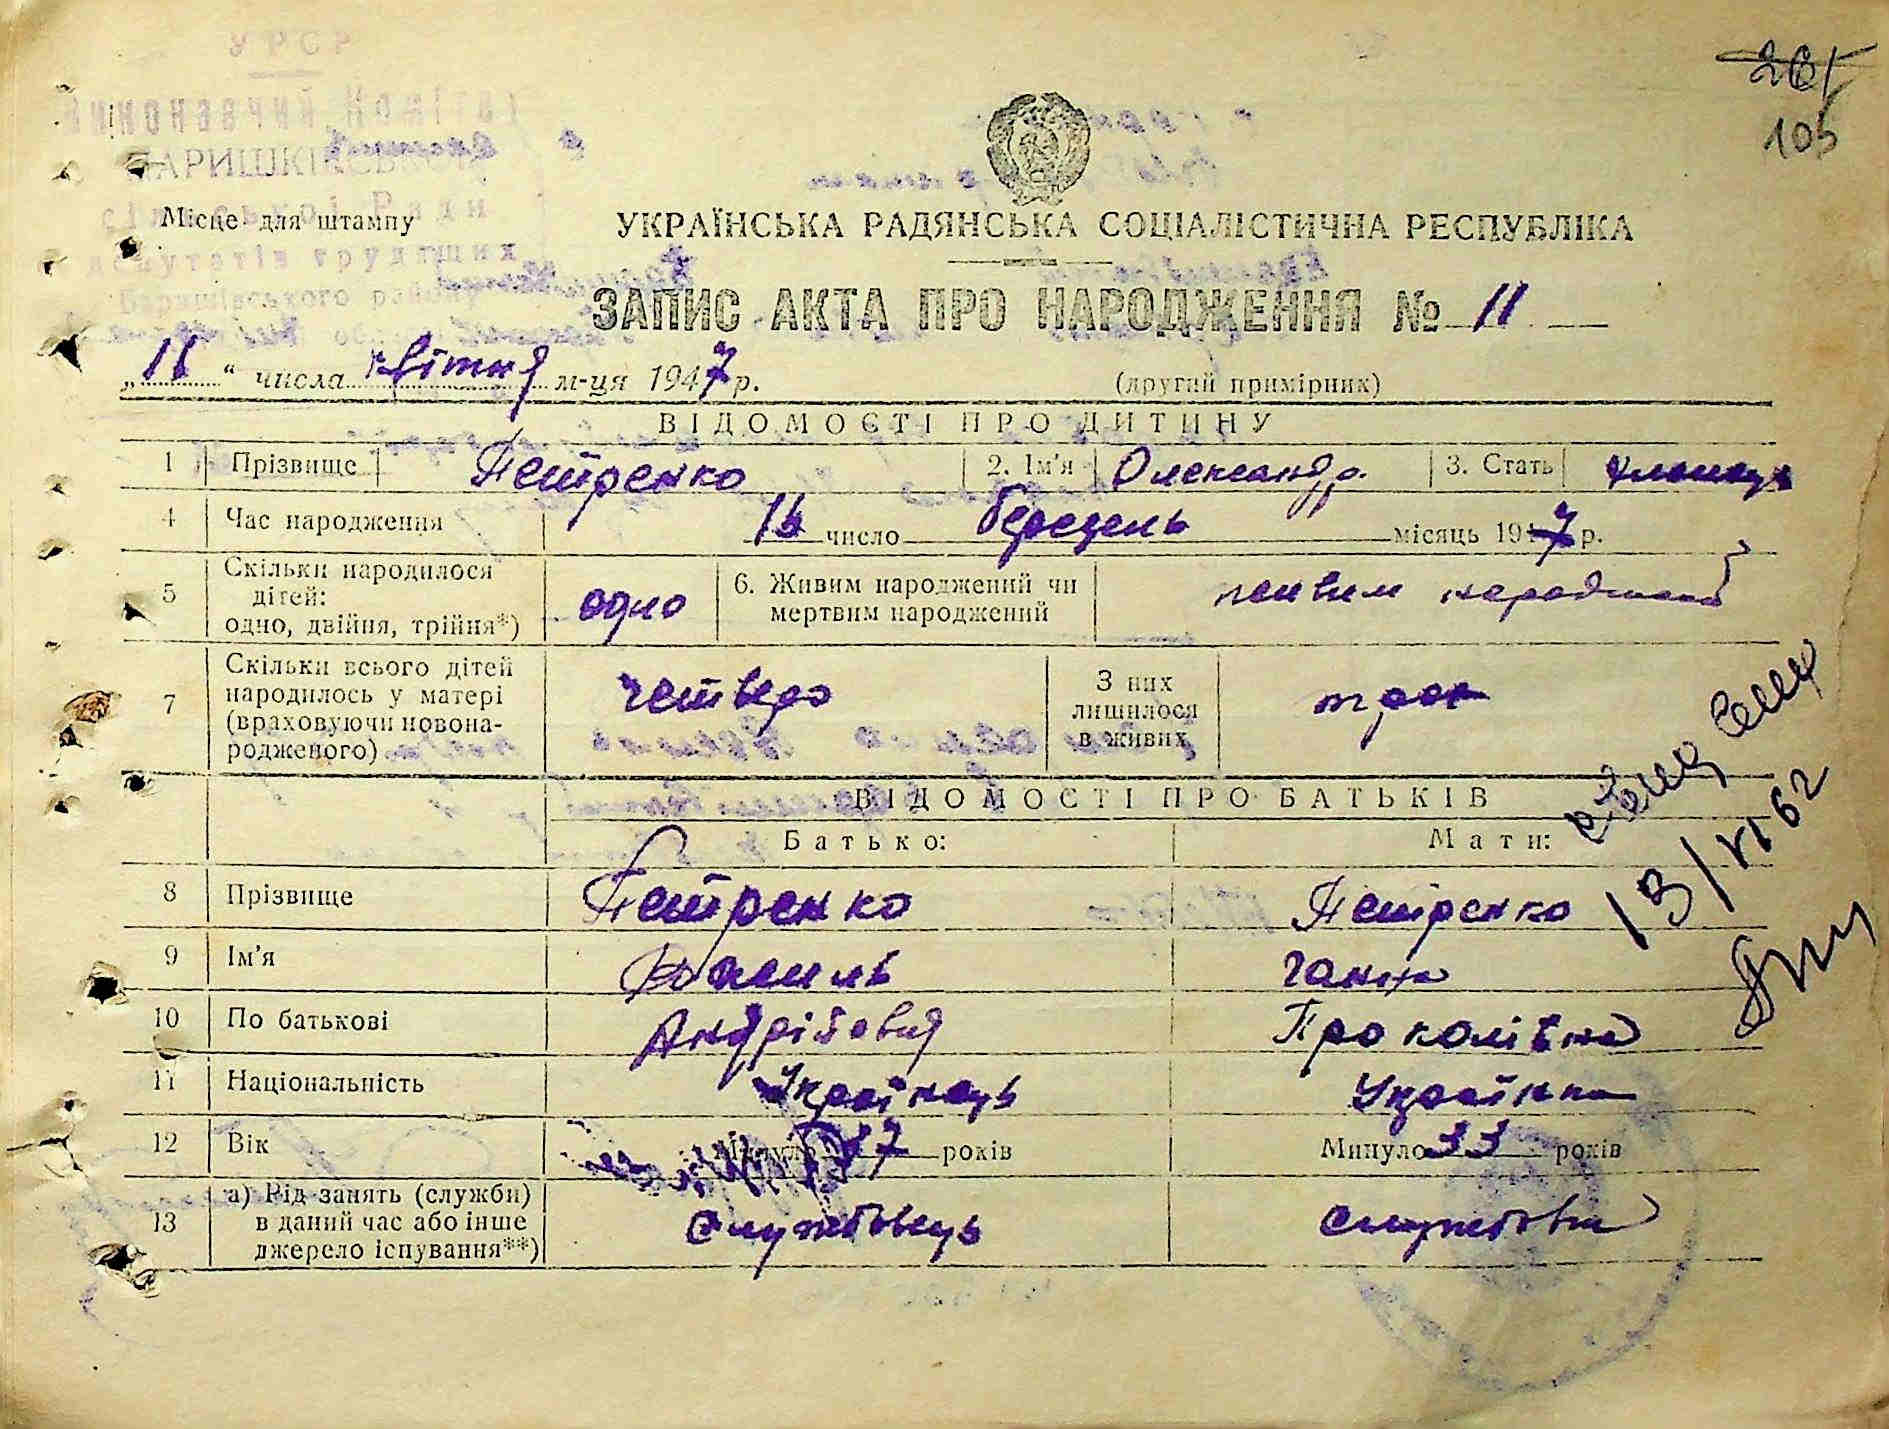 УРСР
Виконавчий Комітет
ПАРИШКІВСЬКОЇ
сільської Ради
депутатів трудящих
Баришівського району
Місце для штампу
105
УКРАЇНСЬКА РАДЯНСЬКА СОЦІАЛІСТИЧНА РЕСПУБЛІКА
ЗАПИС АКТА ПРО НАРОДЖЕННЯ № 11
„ 16 “ числа квітня м-ця 1947 р.
(другий примірник)
ВІДОМОСТІ ПРО ДИТИНУ
1 Прізвище Петренко 2. Ім'я Олександр 3. Стать хлопець
4 Час народження 16 число березень місяць 1947 р.
5 Скільки народилося дітей: одно, двійня, трійня*) одно 6. Живим народжений чи мертвим народжений живим народжений
7 Скільки всього дітей народилось у матері (враховуючи новона-родженого) четверо З них лишилося в живих троє
ВІДОМОСТІ ПРО БАТЬКІВ
Батько: Мати:
8 Прізвище Петренко Петренко
9 Ім'я Ганна
10 По батькові Андрійович Прокопівна
11 Національність Українець Українка
12 Вік Минуло 37 років Минуло 33 років
13 а) Рід занять (служби) в даний час або інше джерело існування**) Службовець Службовка
13/VI 62